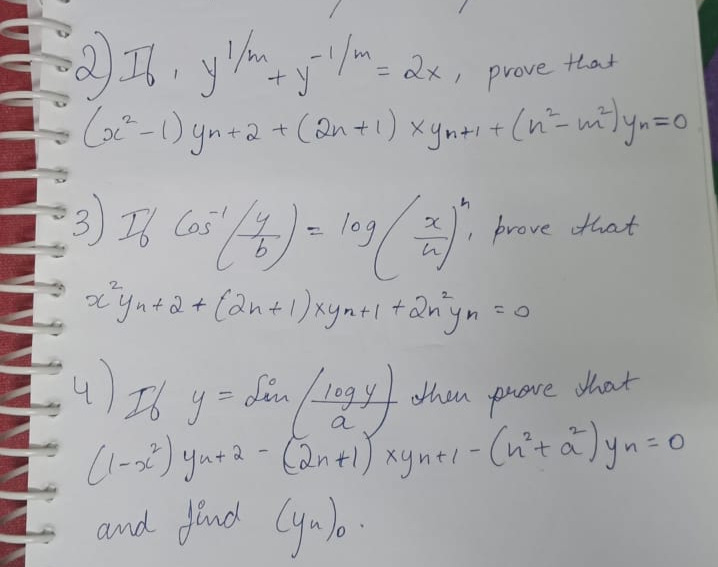 2) If, y^{1/m} + y^{-1/m} = 2x, prove that
(x² - 1) yn+2 + (2n+1) xyn+1 + (n² - m²) yn = 0
3) If Cos⁻¹(y/b) = log(x/n)ⁿ, prove that
x²yn+2 + (2n+1) xyn+1 + 2n²yn = 0
4) If y = Sin(log y/a) then prove that
(1-x²) yn+2 - (2n+1) xyn+1 - (n² + a²) yn = 0
and find (yn)₀.